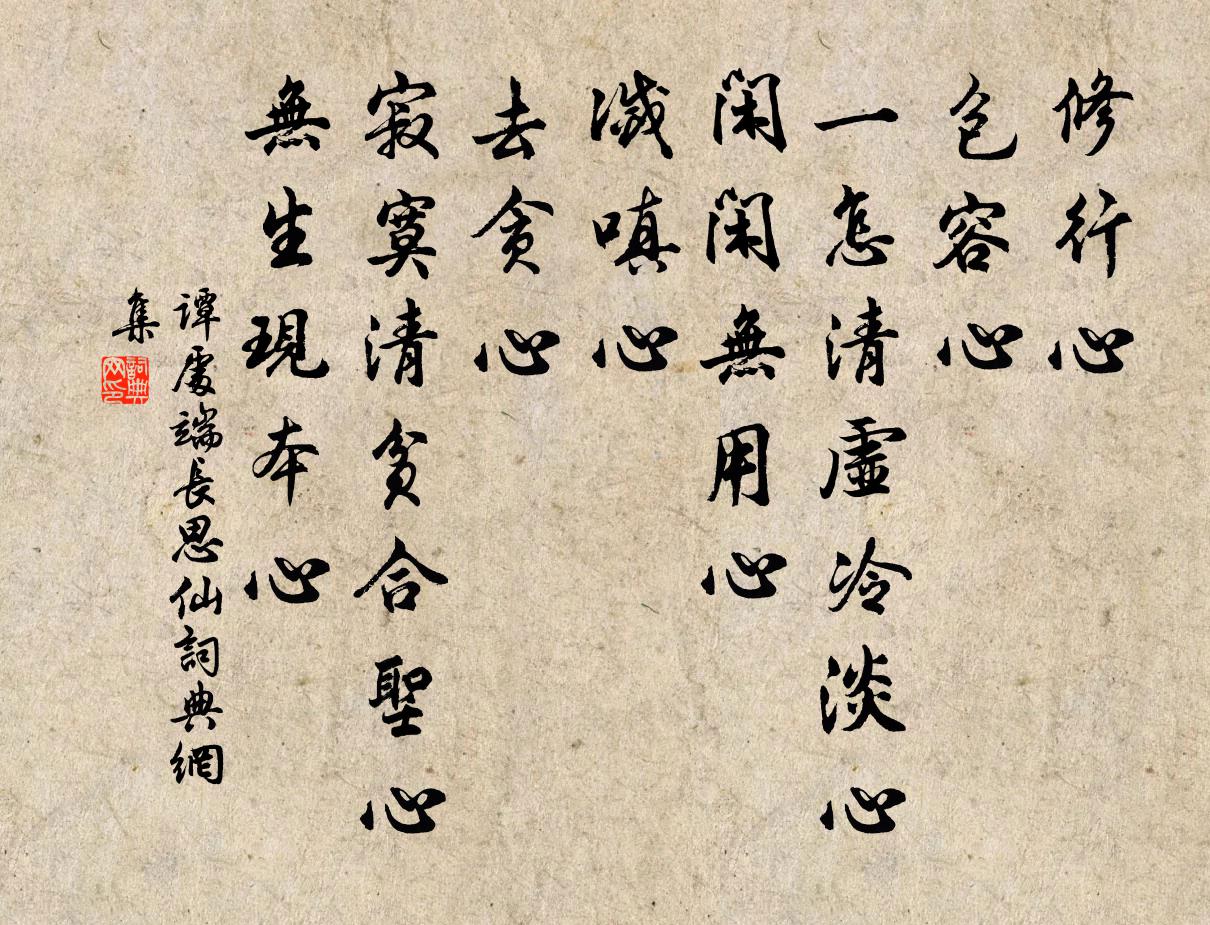 修行心
包容心
一怎清虛冷淡心
閑閑無用心
滅嗔心
去貪心
寂寞清貧合聖心
無生現本心
譚處端長思仙詞典網
集
詞典
網印